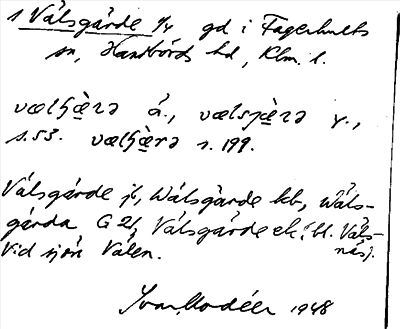 1 Válsgärde 1/4 gd i Fagerhults
sn, Handbörds hd, Klm. l.
vælʃæ̀rə á., vælsjæ̀rə y.,
s. 53. vælʃæ̀rə s. 199.
Válsgärde jb, Wålsgärde kb, Wåls-
gärda G 2/1, Válsgärde ek (bl. Våls-
Vid sjön Válen. näs).
Ivar Modéer 1948